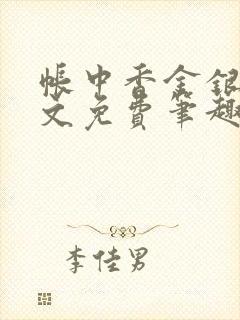 帐中香金银
文免费笔趣
李佳男